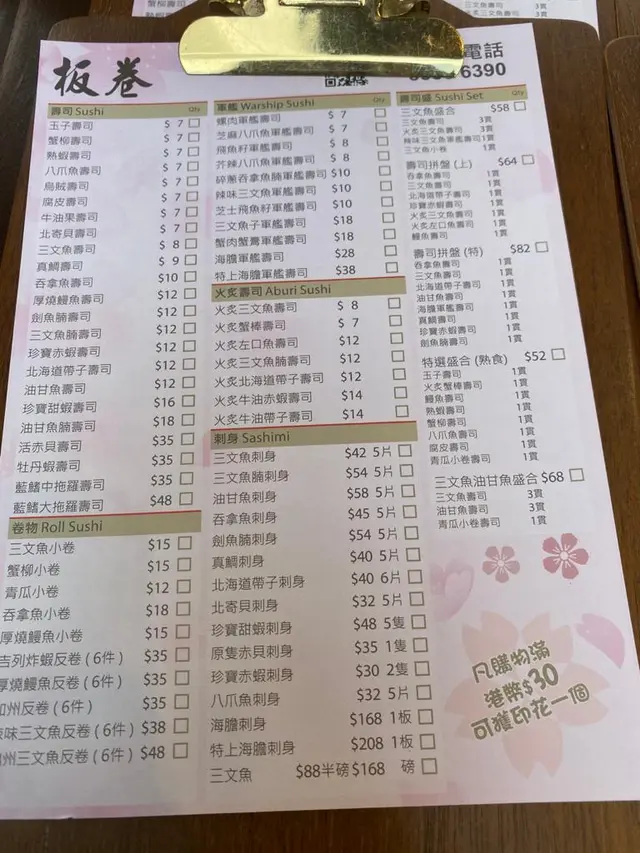 板卷
電話
6390
壽司 Sushi Qty
玉子壽司 $ 7
蟹柳壽司 $ 7
熟蝦壽司 $ 7
八爪魚壽司 $ 7
烏賊壽司 $ 7
腐皮壽司 $ 7
牛油果壽司 $ 7
北寄貝壽司 $ 7
三文魚壽司 $ 8
真鯛壽司 $ 9
吞拿魚壽司 $10
厚燒鰻魚壽司 $12
劍魚腩壽司 $12
三文魚腩壽司 $12
珍寶赤蝦壽司 $12
北海道帶子壽司 $12
油甘魚壽司 $12
珍寶甜蝦壽司 $16
油甘魚腩壽司 $18
活赤貝壽司 $35
牡丹蝦壽司 $35
藍鰭中拖羅壽司 $35
藍鰭大拖羅壽司 $48
卷物 Roll Sushi
三文魚小卷 $15
蟹柳小卷 $15
青瓜小卷 $12
吞拿魚小卷 $18
厚燒鰻魚小卷 $15
吉列炸蝦反卷 (6件) $35
厚燒鰻魚反卷 (6件) $35
州反卷 (6件) $35
味三文魚反卷 (6件) $38
州三文魚反卷 (6件) $48
軍艦 Warship Sushi Qty
螺肉軍艦壽司 $ 7
芝麻八爪魚軍艦壽司 $ 7
飛魚籽軍艦壽司 $ 8
芥辣八爪魚軍艦壽司 $ 8
碎蔥吞拿魚腩軍艦壽司 $10
辣味三文魚軍艦壽司 $10
芝士飛魚籽軍艦壽司 $10
三文魚子軍艦壽司 $18
蟹肉蟹膏軍艦壽司 $18
海膽軍艦壽司 $28
特上海膽軍艦壽司 $38
火炙壽司 Aburi Sushi
火炙三文魚壽司 $ 8
火炙蟹棒壽司 $ 7
火炙左口魚壽司 $12
火炙三文魚腩壽司 $12
火炙北海道帶子壽司 $12
火炙牛油赤蝦壽司 $14
火炙牛油帶子壽司 $14
刺身 Sashimi
三文魚刺身 $42 5片
三文魚腩刺身 $54 5片
油甘魚刺身 $58 5片
吞拿魚刺身 $45 5片
劍魚腩刺身 $54 5片
真鯛刺身 $40 5片
北海道帶子刺身 $40 6片
北寄貝刺身 $32 5片
珍寶甜蝦刺身 $48 5隻
原隻赤貝刺身 $35 1隻
珍寶赤蝦刺身 $30 2隻
八爪魚刺身 $32 5片
海膽刺身 $168 1板
特上海膽刺身 $208 1板
三文魚 $88半磅 $168 磅
壽司盛 Sushi Set Qty
三文魚盛合 $58
三文魚壽司 3貫
火炙三文魚壽司 3貫
辣味三文魚軍艦壽司 1貫
三文魚小卷 1貫
壽司拼盤 (上) $64
吞拿魚壽司 1貫
三文魚壽司 1貫
北海道帶子壽司 1貫
珍寶赤蝦壽司 1貫
火炙三文魚壽司 1貫
火炙左口魚壽司 1貫
鰻魚壽司 1貫
壽司拼盤 (特) $82
吞拿魚壽司 1貫
三文魚壽司 1貫
北海道帶子壽司 1貫
油甘魚壽司 1貫
海膽軍艦壽司 1貫
真鯛壽司 1貫
珍寶赤蝦壽司 1貫
劍魚腩壽司 1貫
特選盛合 (熟食) $52
玉子壽司 1貫
火炙蟹棒壽司 1貫
鰻魚壽司 1貫
熟蝦壽司 1貫
蟹柳壽司 1貫
八爪魚壽司 1貫
腐皮壽司 1貫
青瓜小卷壽司 1貫
三文魚油甘魚盛合 $68
三文魚壽司 3貫
油甘魚壽司 3貫
青瓜小卷壽司 1貫
凡購物滿
港幣$30
可獲印花一個